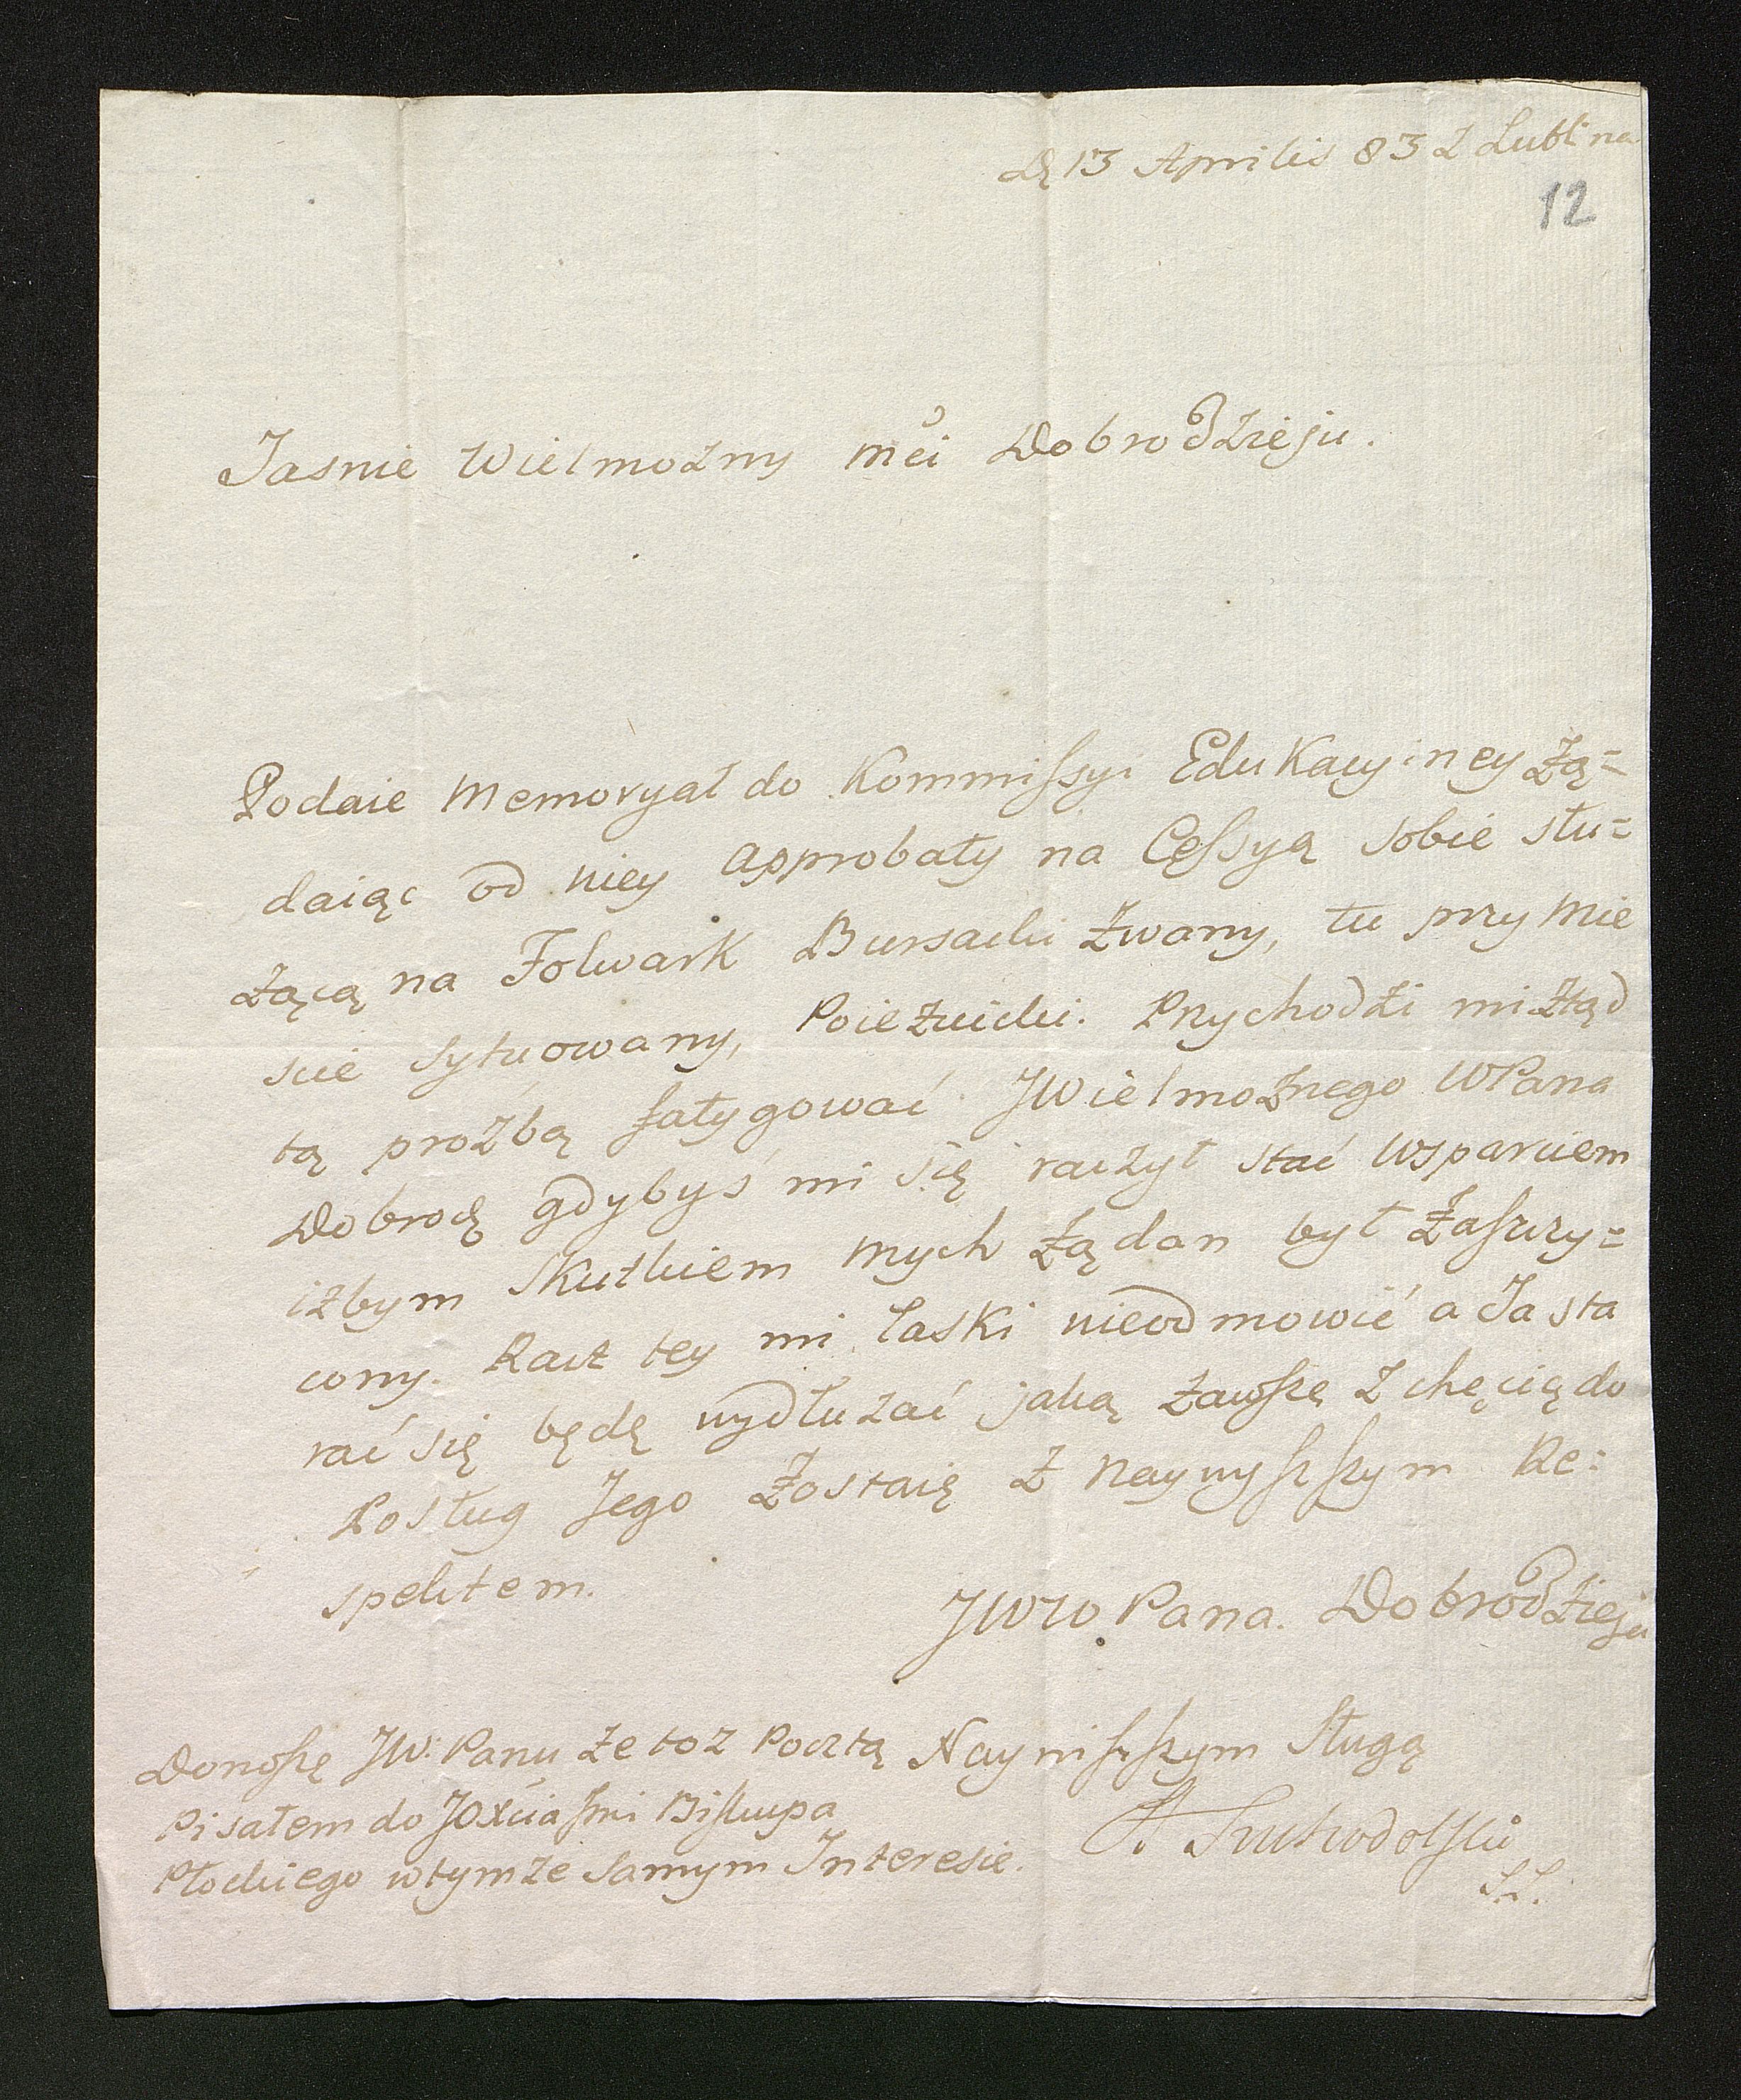 Dę 13 Aprilis 83 z Lublina
12
Jasnie Wielmozny mći Dobrodzieju.
Podaie Memoryał do Kommissyi Edukacyiney żą=
daiąc od niey approbaty na Cęssyą sobie słu=
żącą na Folwark Bursacki zwany, tu przy Mie
scie sytuowany, Poiezuicki. Przychodzi mi ztąd
tą prozbą fatygować JWielmożnego WPana
Dobrodę gdybyś mi się raczył stać wsparciem
izbym skutkiem mych żądan był zaszczy=
cony. Racz tey mi łaski nieodmowić a Ja sta
rać się będę wydłużać jaką zawsze z chęcią do
Posług Jego zostaię z naywyszszym Re:
spektem.
JWW Pana. Dobrodzieja
Donoszę JW: Panu że toż Pocztą
Pisałem do JOXcia Jmci Biskupa
Płockiego w tymże samym Interesie.
Naynisszszym Sługą
A Suchodolski
S.L.